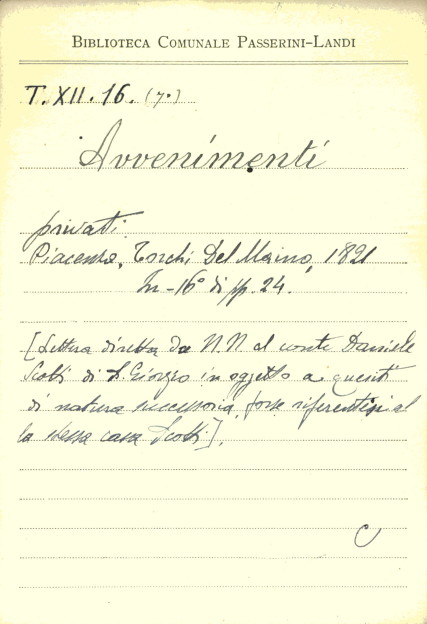 BIBLIOTECA COMUNALE PASSERINI-LANDI
T. XII. 16. (7°)
Avvenimenti
privati.
Piacenza, Torchi Del Maino, 1821
In-16° di pp. 24.
[Lettera diretta da N.N al conte Daniele
Scotti di S. Giorgio in oggetto a quesiti
di natura successoria, forse riferentisi al
la stessa casa Scotti].
C